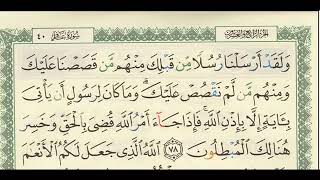 الجزء الرابع والعشرون سورة غافر ٤٠
وَلَقَدْ أَرْسَلْنَا رُسُلًا مِّن قَبْلِكَ مِنْهُم مَّن قَصَصْنَا عَلَيْكَ
وَمِنْهُم مَّن لَّمْ نَقْصُصْ عَلَيْكَ ۗ وَمَا كَانَ لِرَسُولٍ أَن يَأْتِىَ
بِـَٔايَةٍ إِلَّا بِإِذْنِ ٱللَّهِ ۚ فَإِذَا جَآءَ أَمْرُ ٱللَّهِ قُضِىَ بِٱلْحَقِّ وَخَسِرَ
هُنَالِكَ ٱلْمُبْطِلُونَ ٧٨ ٱللَّهُ ٱلَّذِى جَعَلَ لَكُمُ ٱلْأَنْعَٰمَ